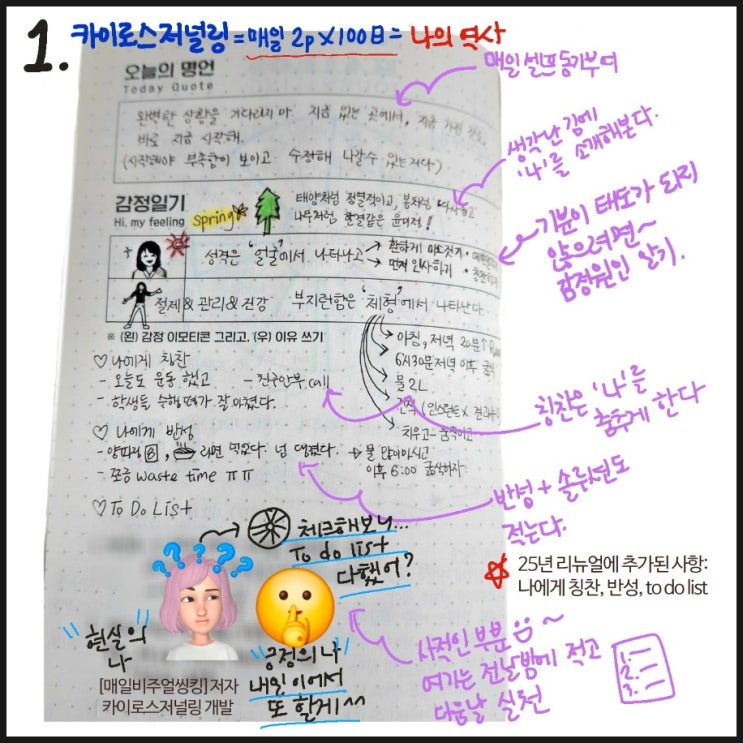 1. 카이로스저널링 = 매일 2p x 100日 = 나의 역사
오늘의 명언
Today Quote
매일 셀프동기부여
완벽한 상황을 기다리지 마. 지금 있는 곳에서, 지금 가진 것으로,
바로 지금 시작해.
(시작해야 부족함이 보이고 수정해 나갈 수 있는거다)
생각난 김에
'나'를 소개해본다.
감정일기
Hi, my feeling
spring
태양처럼 정열적이고, 봄처럼 따사롭고
나무처럼 한결같은 윤여정!
기분이 태도가 되지
않으려면~
감정원인 알기.
성격은 '얼굴'에서 나타나고
환하게 미소짓기
먼저 인사하기
절제&관리&건강 부지런함은 '체형'에서 나타난다.
※ (왼) 감정 이모티콘 그리고, (우) 이유 쓰기
아침, 저녁 20분↑
6시30분 저녁 이후 금식
물 2L
간식 (인스턴트x
치우고- 움직이고
♡ 나에게 칭찬
- 오늘도 운동 했고
- 친구안부 call
- 학생들 수행평가 잘 마쳤다.
칭찬은 '나'를
춤추게 한다
♡ 나에게 반성
라면 먹었다. 넘 땡겼다. → 물 많이마시고
이후 6:00 금식하자.
- 쪼금 waste time ㅠㅠ
반성 + 솔루션도
적는다.
♡ To Do List
체크해보니...
To do list
다했어?
25년 리뉴얼에 추가된 사항:
나에게 칭찬, 반성, to do list
현실의
나
긍정의 나
내일 이어서
또 할게 ^^
사적인 부분 음~
여기는 전날밤에 적고
다음날 실천
1.
2.
3.
[매일비주얼씽킹] 저자
카이로스저널링 개발